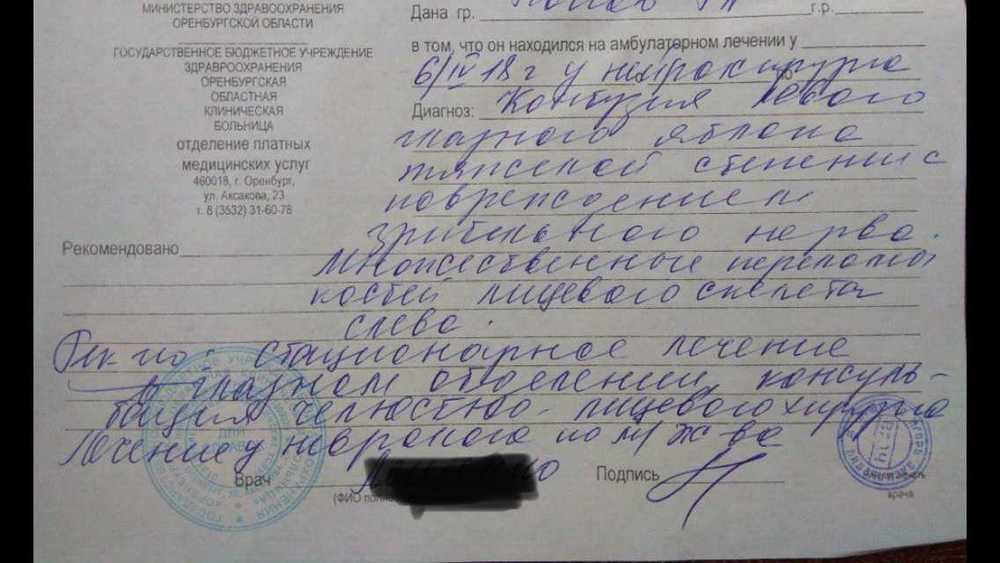 МИНИСТЕРСТВО ЗДРАВООХРАНЕНИЯ
ОРЕНБУРГСКОЙ ОБЛАСТИ
ГОСУДАРСТВЕННОЕ БЮДЖЕТНОЕ УЧРЕЖДЕНИЕ
ЗДРАВРООХРАНЕНИЯ
ОРЕНБУРГСКАЯ
ОБЛАСТНАЯ
КЛИНИЧЕСКАЯ
БОЛЬНИЦА
отделение платных
медицинских услуг
460018, г. Оренбург,
ул. Аксакова, 23
т. 8 (3532) 31-60-78
Дана гр. г.р.
в том, что он находился на амбулаторном лечении у
6/IV 18 г у нейрохирурга
Диагноз: Контузия левого
глазного яблока
тяжелой степени с
повреждением
зрительного нерва.
Рекомендовано
Множественные переломы
костей лицевого скелета
слева.
стационарное лечение
в глазном отделении, консуль-
тация челюстно-лицевого хирурга
Лечение у невролога по м/ж ва
Врач Подпись
(ФИО
врача